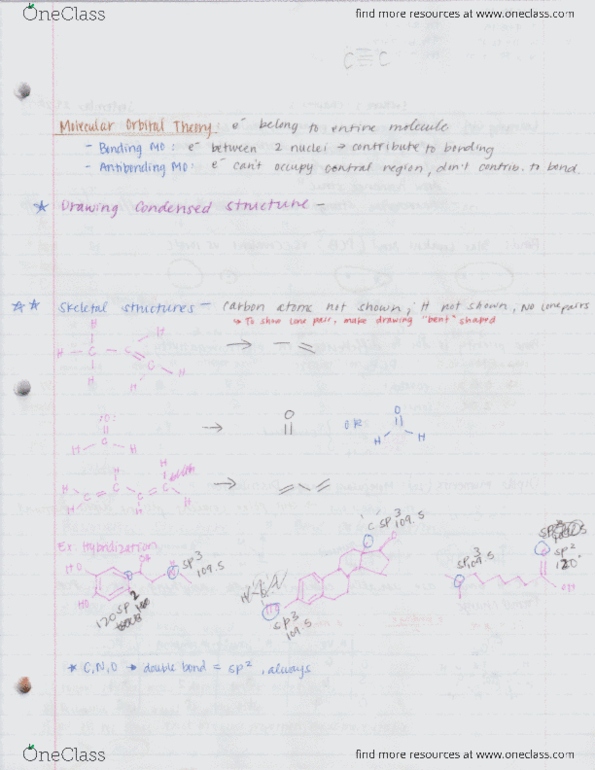 OneClass find more resources at www.oneclass.com
C≡C
Molecular Orbital Theory: e⁻ belong to entire molecule
- Bonding MO: e⁻ between 2 nuclei → contribute to bonding
- Antibonding MO: e⁻ can't occupy central region, don't contrib. to bond.
* Drawing Condensed Structure -
** Skeletal structures - carbon atoms not shown, H not shown, No lone pairs
↳ To show lone pair, make drawing "bent" shaped
H H
H C C C H
H H
:O: O O
H C H OR H H
H H H
H C C C C H
H H
Ex. Hybridization
HO OH sp3 109.5
HO 120 sp2
C sp3 109.5 O
HO sp3 109.5
sp3 109.5
O sp2 120° OH
* C,N,O → double bond = sp², always
OneClass find more resources at www.oneclass.com